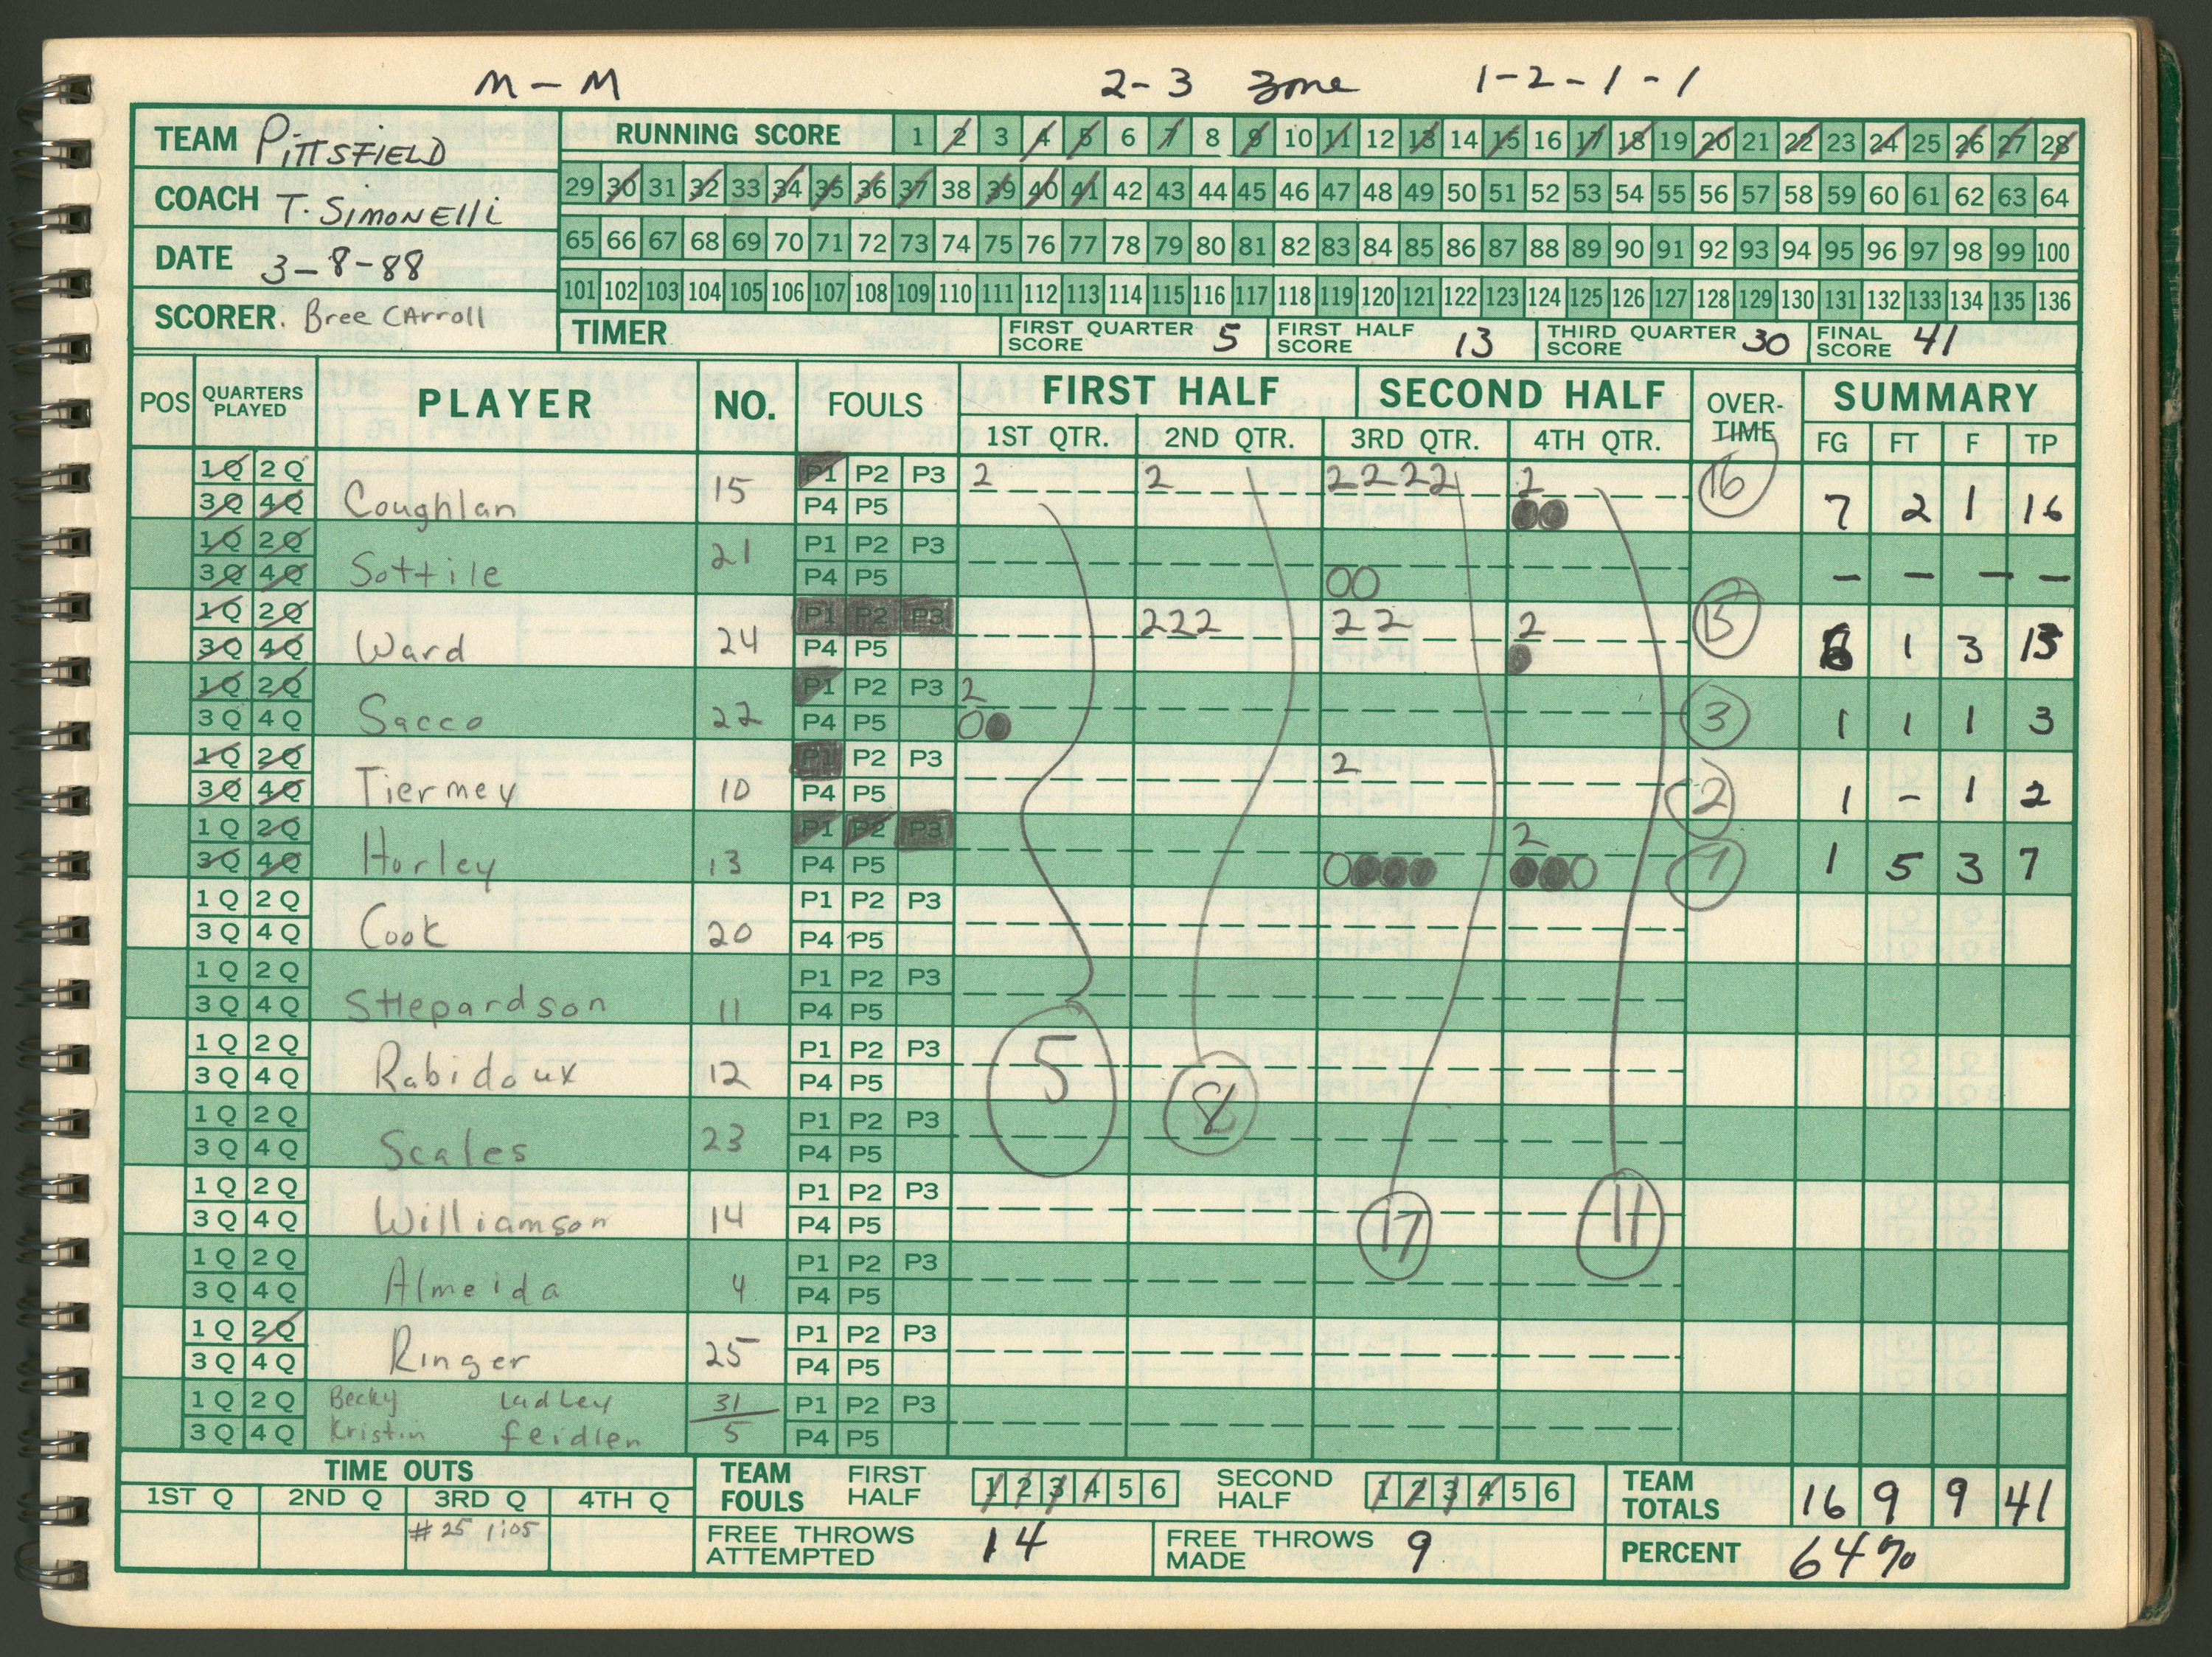 M - M 2-3 Zone 1-2-1-1
TEAM PITTSFIELD
COACH T. SIMONELLI
DATE 3-8-88
SCORER. Bree CArroll
RUNNING SCORE 1 2 3 4 5 6 7 8 9 10 11 12 13 14 15 16 17 18 19 20 21 22 23 24 25 26 27 28
29 30 31 32 33 34 35 36 37 38 39 40 41 42 43 44 45 46 47 48 49 50 51 52 53 54 55 56 57 58 59 60 61 62 63 64
65 66 67 68 69 70 71 72 73 74 75 76 77 78 79 80 81 82 83 84 85 86 87 88 89 90 91 92 93 94 95 96 97 98 99 100
101 102 103 104 105 106 107 108 109 110 111 112 113 114 115 116 117 118 119 120 121 122 123 124 125 126 127 128 129 130 131 132 133 134 135 136
TIMER FIRST QUARTER SCORE 5 FIRST HALF SCORE 13 THIRD QUARTER SCORE 30 FINAL SCORE 41
POS QUARTERS PLAYED PLAYER NO. FOULS FIRST HALF SECOND HALF OVER-TIME SUMMARY
1ST QTR. 2ND QTR. 3RD QTR. 4TH QTR. FG FT F TP
1Q 2Q 3Q 4Q Coughlan 15 P1 P2 P3 P4 P5 2 2 2222 2 16 7 2 1 16
1Q 2Q 3Q 4Q Sottile 21 P1 P2 P3 P4 P5 OO - - - -
1Q 2Q 3Q 4Q Ward 24 P1 P2 P3 P4 P5 222 22 2 13 6 1 3 13
1Q 2Q 3Q 4Q Sacco 22 P1 P2 P3 P4 P5 2 O 3 1 1 1 3
1Q 2Q 3Q 4Q Tiermey 10 P1 P2 P3 P4 P5 2 2 1 - 1 2
1Q 2Q 3Q 4Q Horley 13 P1 P2 P3 P4 P5 O 2 O 7 1 5 3 7
1Q 2Q 3Q 4Q Cook 20 P1 P2 P3 P4 P5
1Q 2Q 3Q 4Q SHepardson 11 P1 P2 P3 P4 P5
1Q 2Q 3Q 4Q Rabidoux 12 P1 P2 P3 P4 P5 5 8
1Q 2Q 3Q 4Q Scales 23 P1 P2 P3 P4 P5
1Q 2Q 3Q 4Q Williamson 14 P1 P2 P3 P4 P5 17 11
1Q 2Q 3Q 4Q Almeida 4 P1 P2 P3 P4 P5
1Q 2Q 3Q 4Q Ringer 25 P1 P2 P3 P4 P5
1Q 2Q Becky Ludley 31 P1 P2 P3
3Q 4Q Kristin feidlen 5 P4 P5
TIME OUTS
1ST Q 2ND Q 3RD Q 4TH Q
#25 1:05
TEAM FOULS FIRST HALF 1 2 3 4 5 6 SECOND HALF 1 2 3 4 5 6
FREE THROWS ATTEMPTED 14 FREE THROWS MADE 9
TEAM TOTALS 16 9 9 41
PERCENT 64%